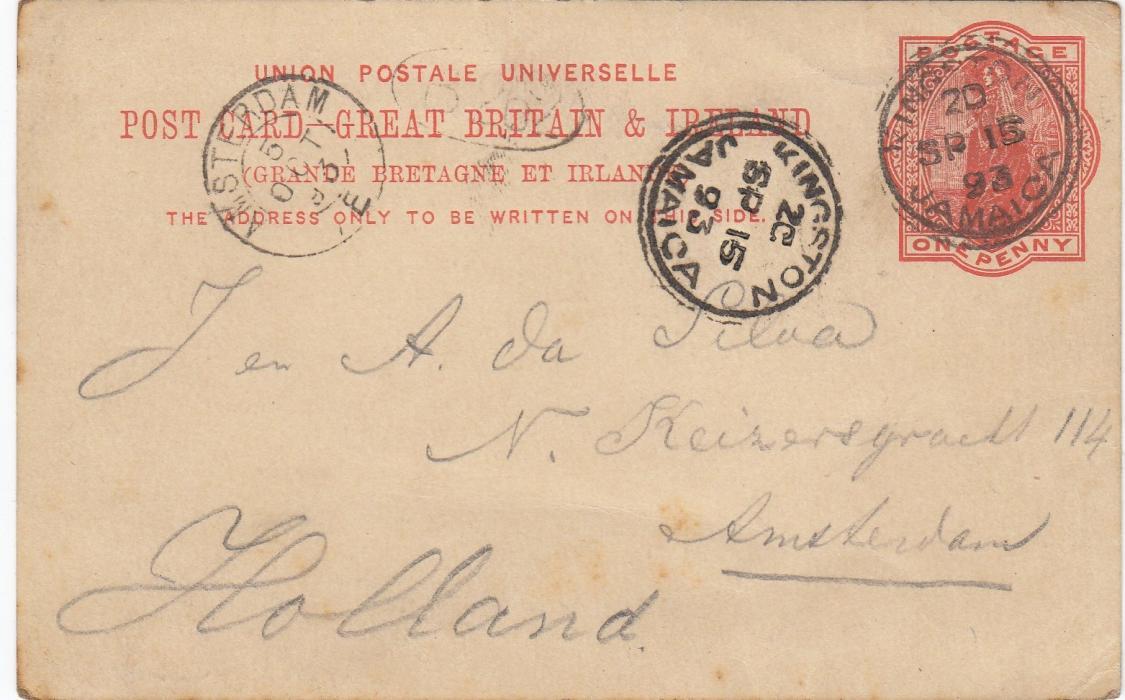 UNION POSTALE UNIVERSELLE
POST CARD—GREAT BRITAIN & IRELAND
(GRANDE BRETAGNE ET IRLANDE)
THE ADDRESS ONLY TO BE WRITTEN ON THIS SIDE.
POSTAGE
ONE PENNY
KINGSTON
2D
SP 15
93
JAMAICA
KINGSTON
2C
SP 15
93
JAMAICA
AMSTERDAM
5 OCT
93
J en A. da Silva
N. Keizersgracht 114
Amsterdam
Holland.